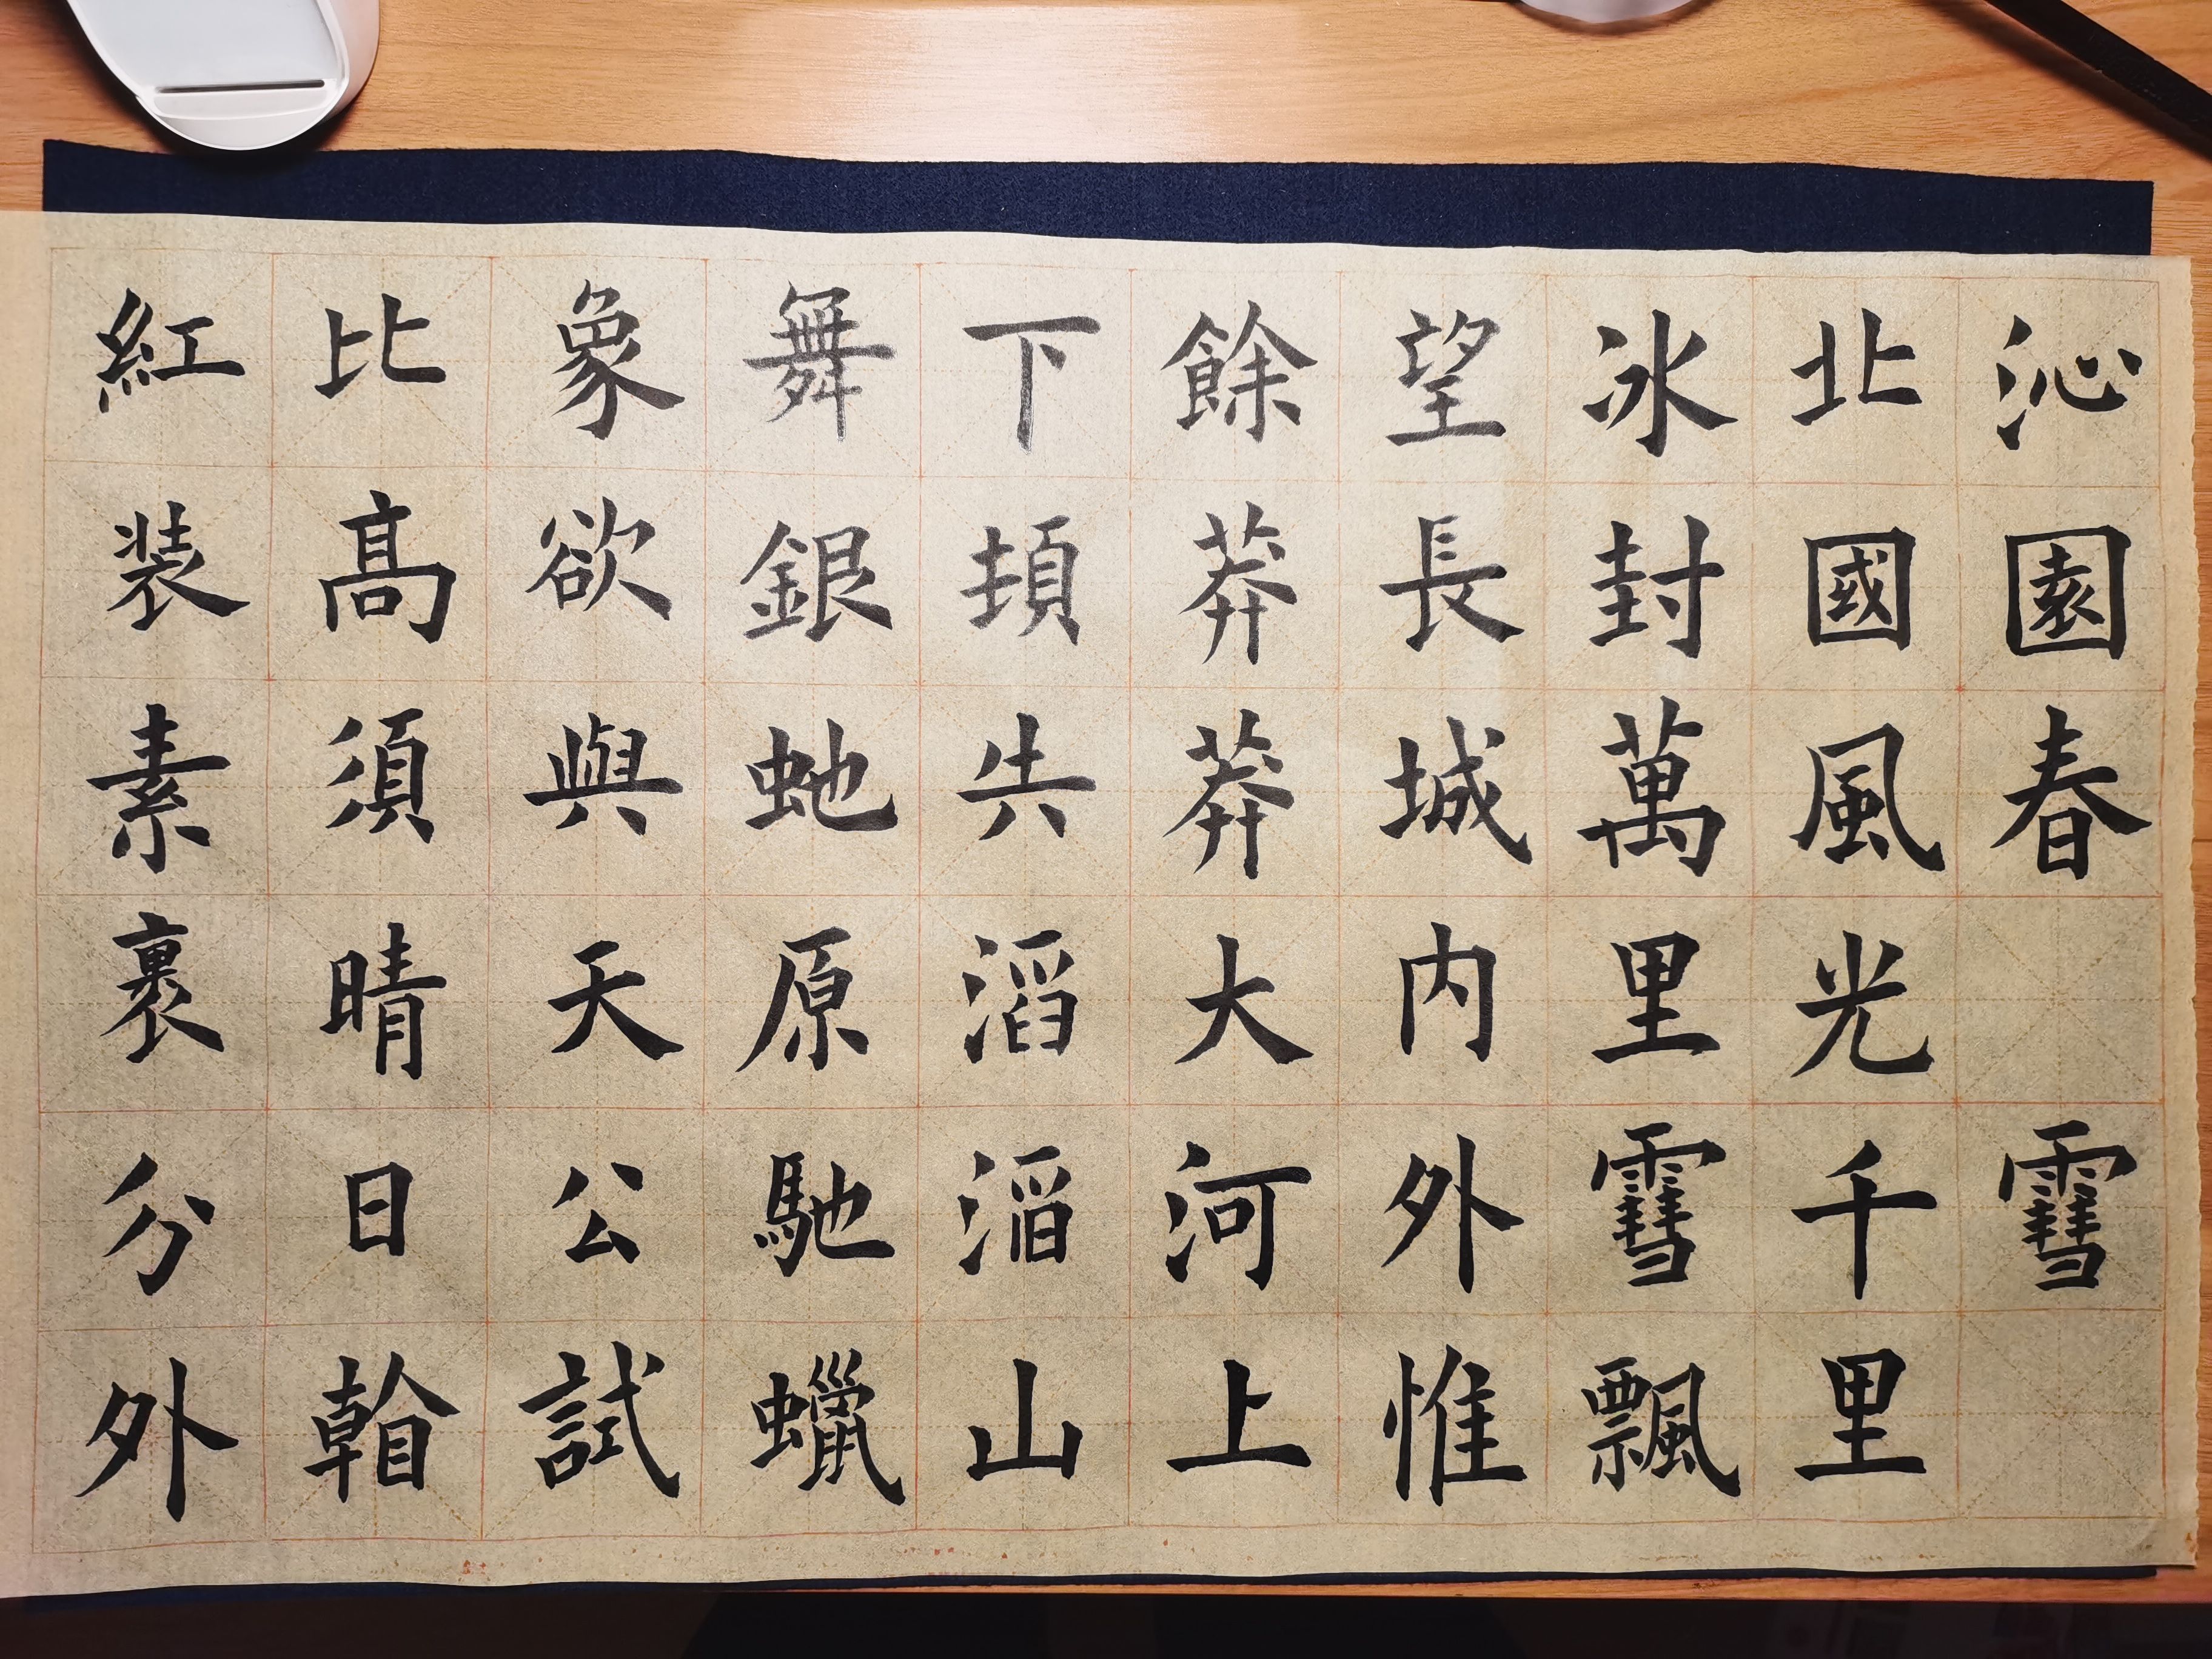 沁園春 䨮
北國風光千里
冰封萬里䨮飄
望長城内外惟
餘莽莽大河上
下頓失滔滔山
舞銀虵原馳蠟
象欲與天公試
比高須晴日看
紅装素裹分外